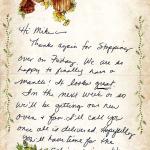 Hi Mike —
Thanks again for stopping
over on Friday. We are so
happy to finally have a
mantle! It looks great
In the next week or so
we'll be getting our new
oven & fan. I'll call you
once all is delivered. Hopefully
you'll have time for the